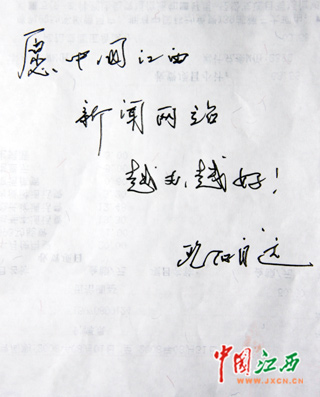 愿中国江西
新闻网站
越办越好！
欧阳自远
中国江西
WWW.JXCN.CN